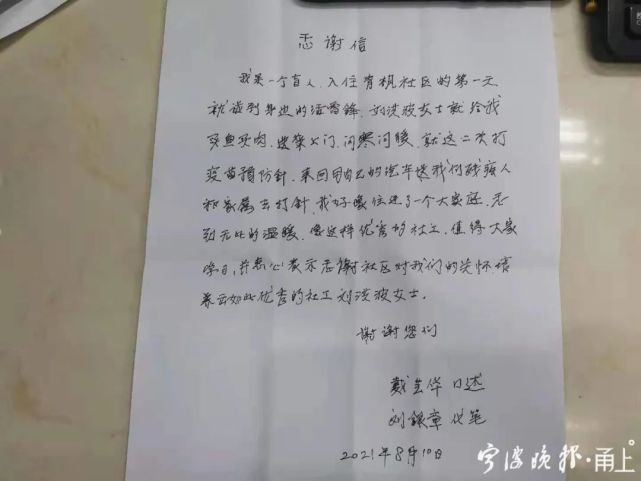 感谢信
我是一个盲人,入住有机社区的第一天
就碰到身边的活雷锋,刘波波女士就给我
买鱼买肉,送菜上门,问寒问暖,就这二次打
疫苗预防针,来回用自己的汽车送我们残疾人
和家属去打针,我好像住进了一个大家庭,感
到无比的温暖,像这样优秀的社工,值得大家
学习,并衷心表示感谢社区对我们的关怀,培
养出如此优秀的社工刘波波女士。
谢谢您们
戴 华 口述
刘银章 代笔
2021年8月10日
宁波晚报·甬上